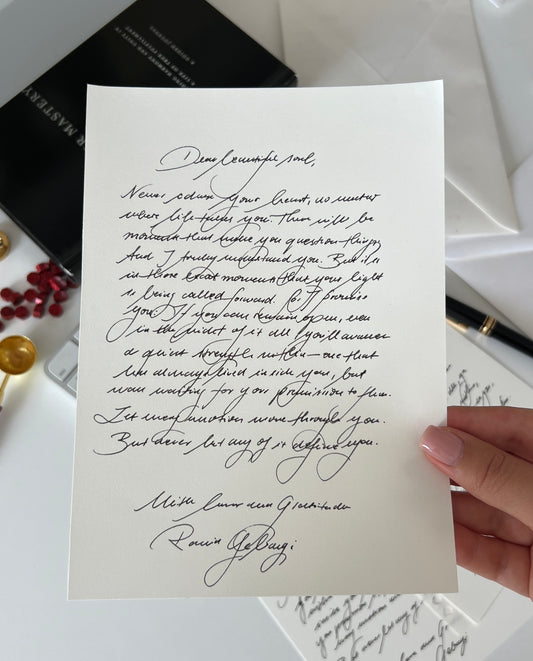 HARMONY AND UNITY IN
A LIFE OF TRUE FULFILLMENT
A GUIDED JOURNEY
R MASTERY
Dear beautiful soul,
Never close your heart, no matter
where life takes you. There will be
moments that make you question things
And I truly understand you. But it is
in those exact moments that your light
is being called forward. So I promise
you: If you can remain open, even
in the midst of it all you'll awaken
a quiet strength within – one that
has always lived inside you, but
was waiting for your permission to
Let every emotion move through you.
But never let any of it define you.
With love and Gratitude